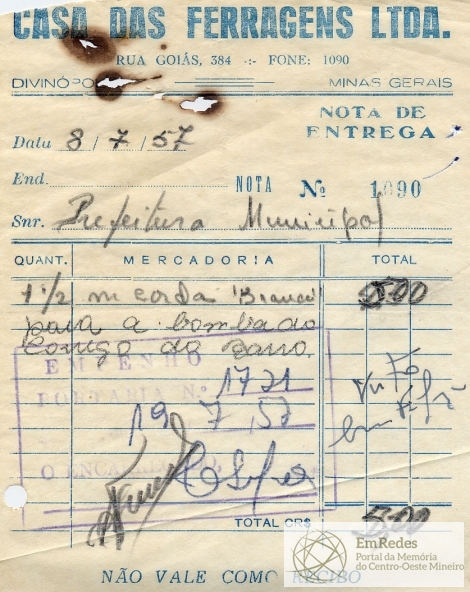 CASA DAS FERRAGENS LTDA.
RUA GOIÁS, 384 -:- FONE: 1090
DIVINÓPO MINAS GERAIS
NOTA DE
ENTREGA
Data 8 / 7 / 57
End. NOTA Nº 1090
Snr. Prefeitura Municipal
QUANT. MERCADORIA TOTAL
1 1/2 m corda 500
para a bomba do
Corrego do Barro.
EMPENHO
PORTARIA Nº 1721
19 7 57
O ENCARREGADO
TOTAL CR$ 500
NÃO VALE COMO RECIBO
EmRedes
Portal da Memória
do Centro-Oeste Mineiro